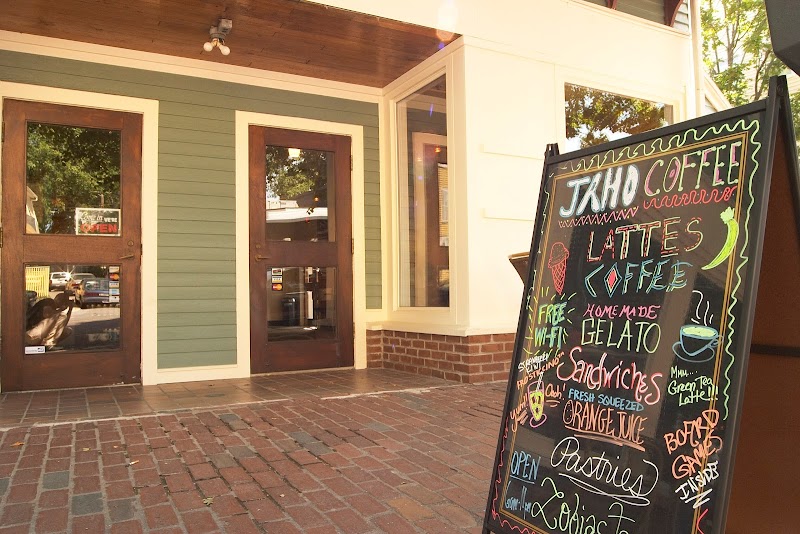 OPEN
JAHO COFFEE
LATTES
COFFEE
FREE
Wi-Fi
HOMEMADE
GELATO
Sandwiches
Mmm....
Green Tea
Latte!!!
Yum!
Ooh!
FRESH SQUEEZED
ORANGE JUICE
BOARD
GAMES
INSIDE
Pastries
OPEN